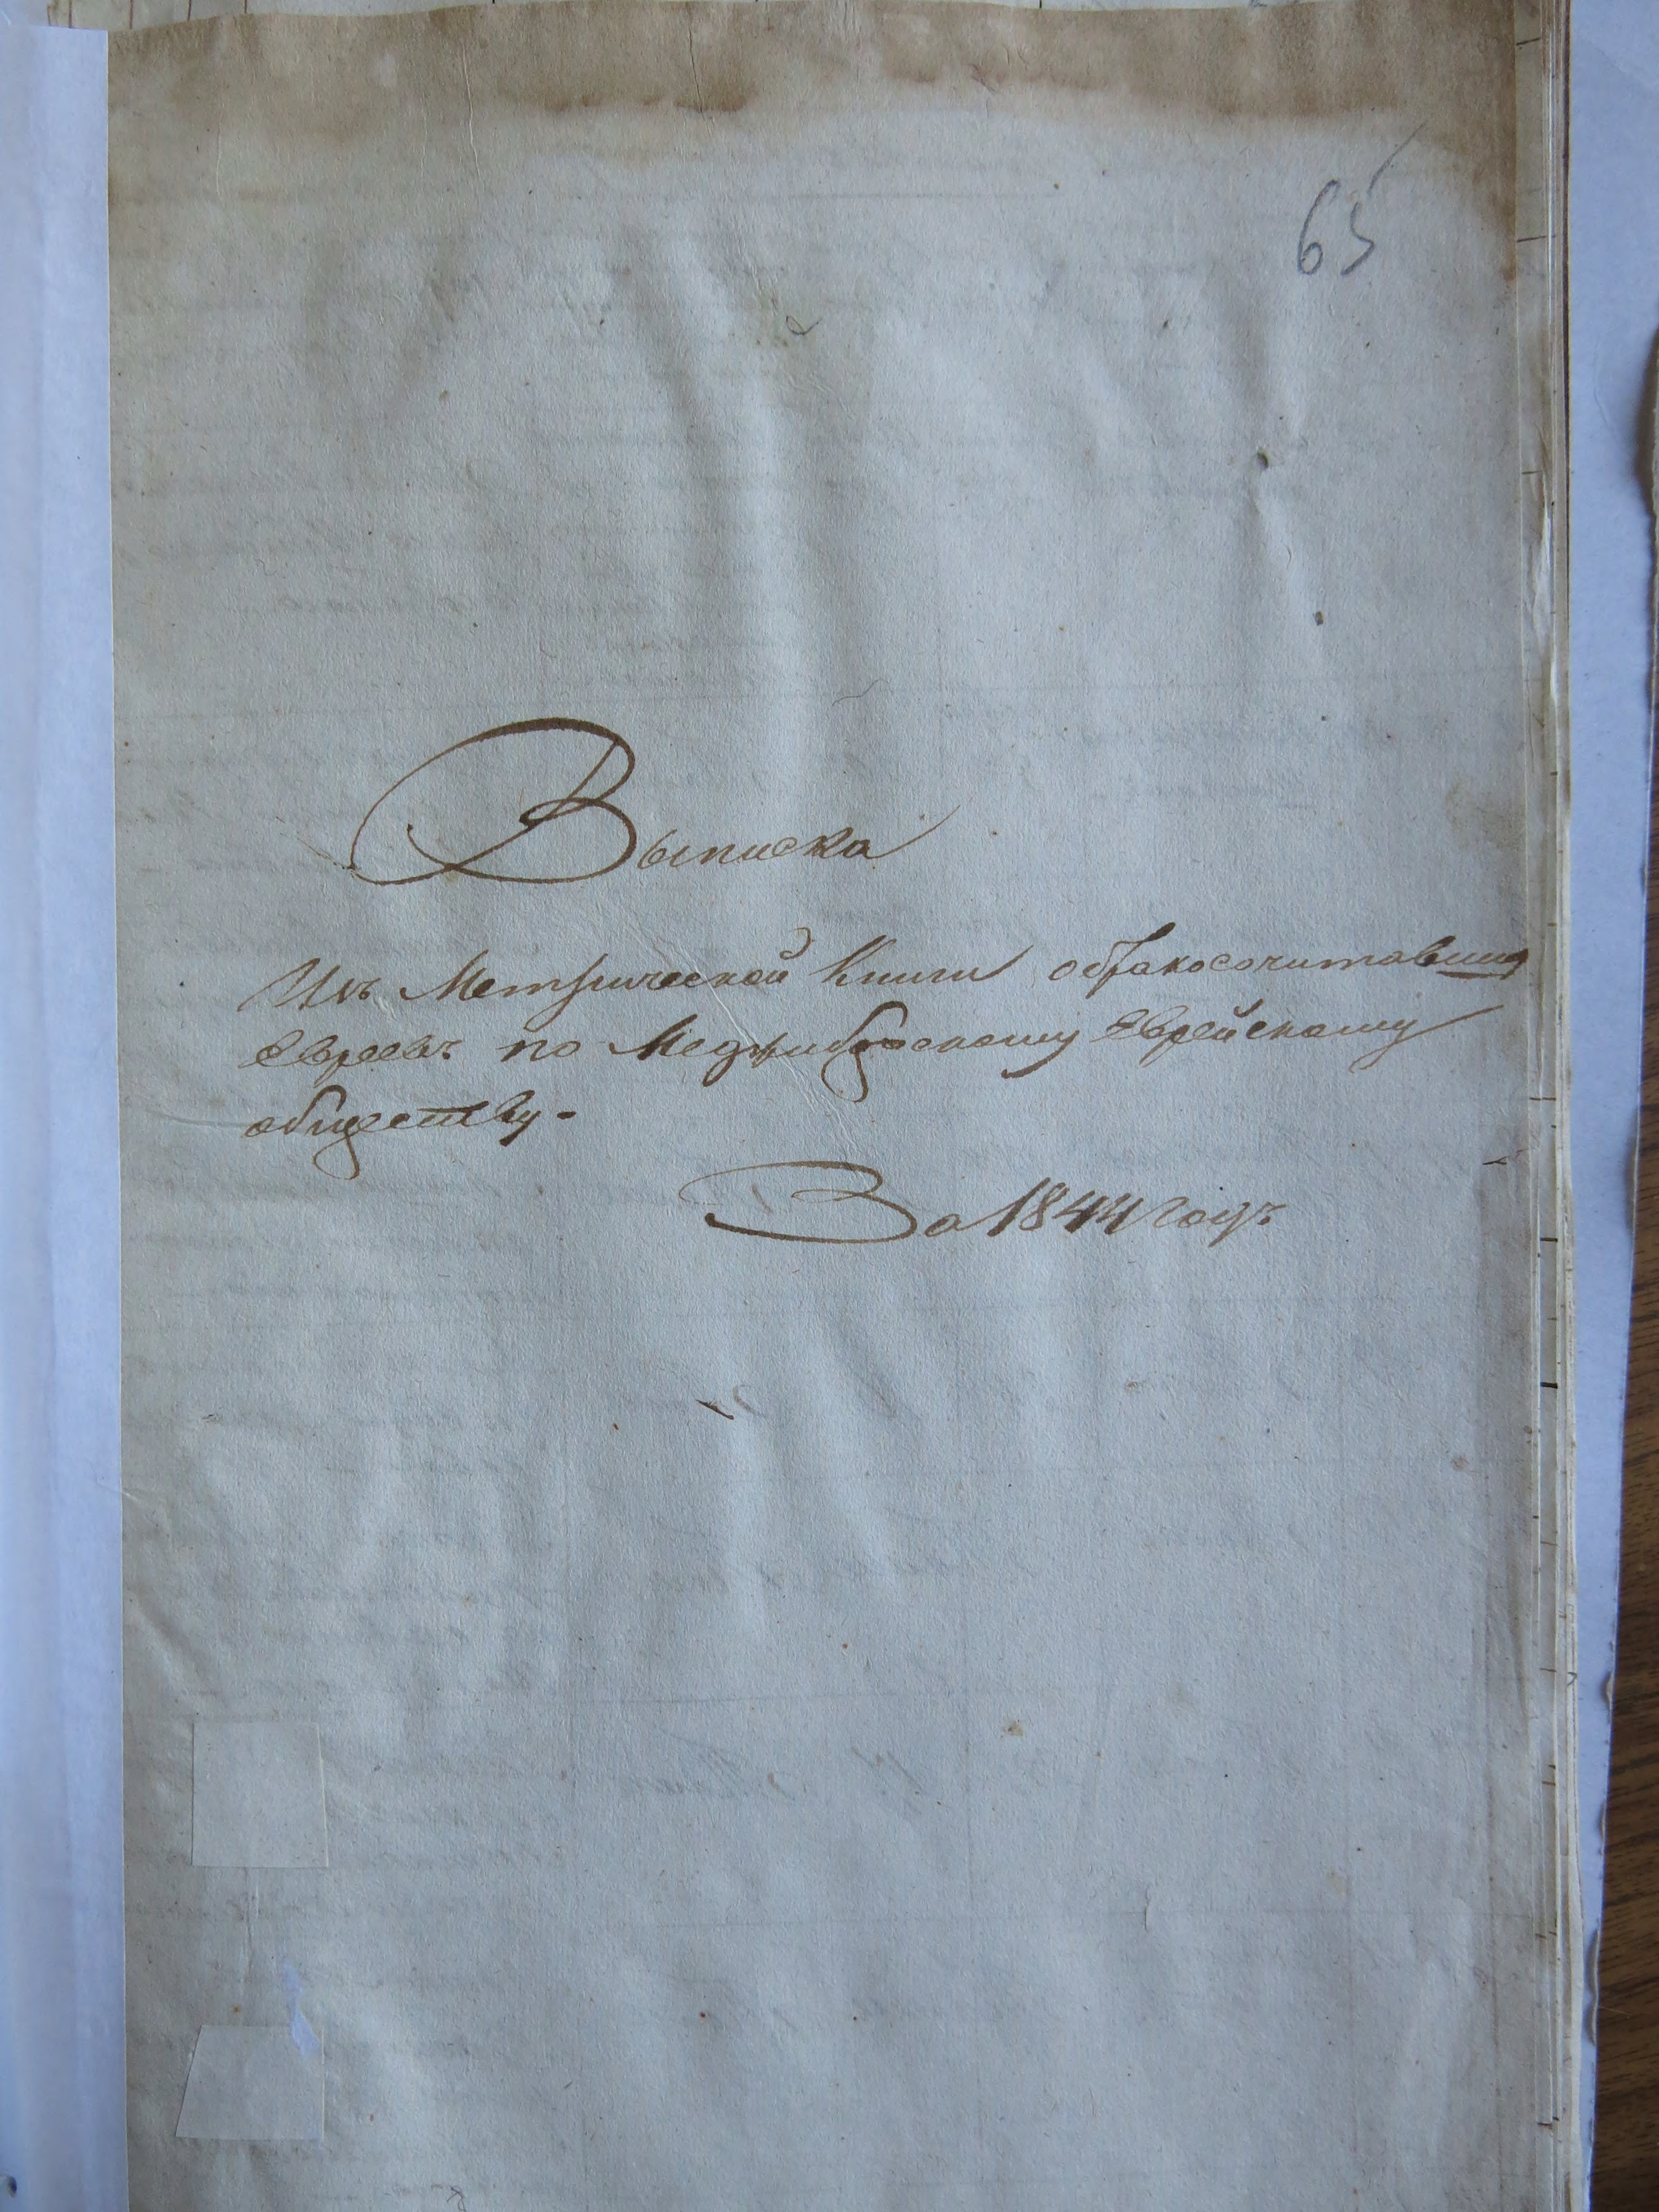 65
Выписка
Изъ Метрической Книги обракосочитавшихся
Евреевъ по Меджибожскому Еврейскому
обществу-
За 1844 годъ